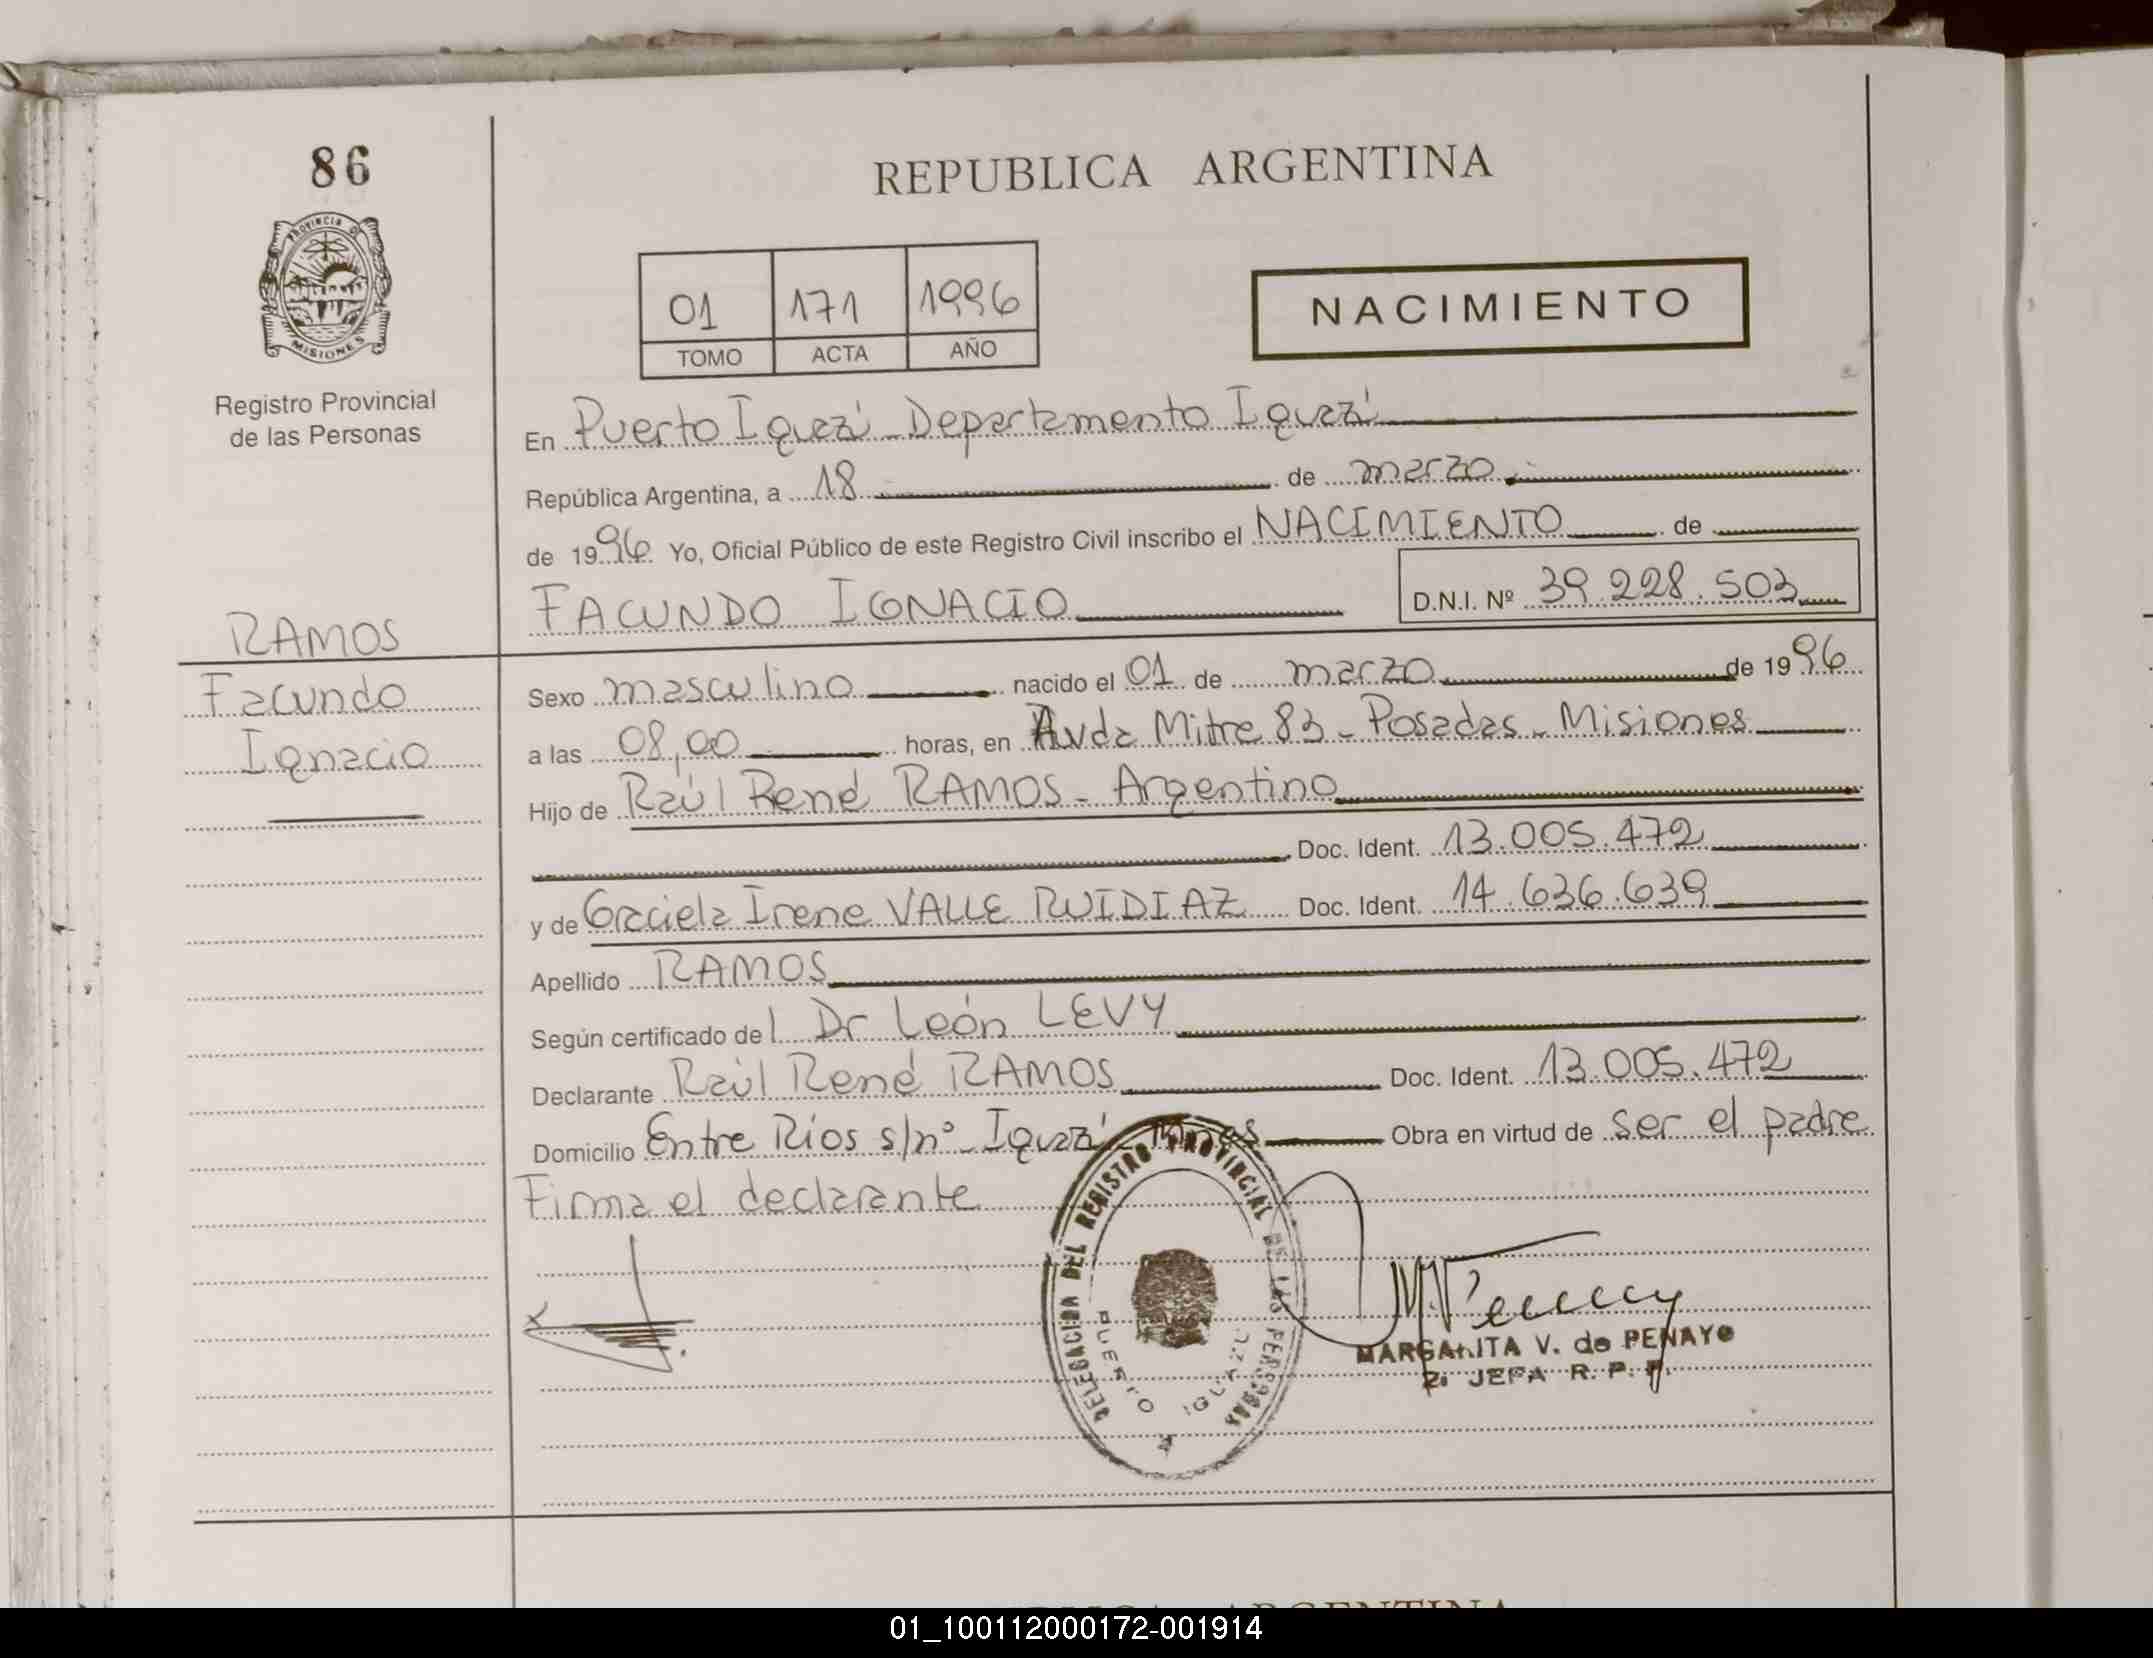 86
REPUBLICA ARGENTINA
PROVINCIA DE
MISIONES
Registro Provincial
de las Personas
01 171 1996
TOMO ACTA AÑO
NACIMIENTO
En Puerto Iguazú - Departamento Iguazú
República Argentina, a 18 de marzo
de 1996 Yo, Oficial Público de este Registro Civil inscribo el NACIMIENTO de
FACUNDO IGNACIO D.N.I. Nº 39.228.503
RAMOS
Facundo
Ignacio
Sexo masculino nacido el 01 de marzo de 1996
a las 08,00 horas, en Avda Mitre 83 - Posadas - Misiones
Hijo de Raúl René RAMOS - Argentino
Doc. Ident. 13.005.472
y de Graciela Irene VALLE RUIDIAZ Doc. Ident. 14.636.639
Apellido RAMOS
Según certificado del Dr León LEVY
Declarante Raúl René RAMOS Doc. Ident. 13.005.472
Domicilio Entre Ríos s/nº - Iguazú - Mnes Obra en virtud de ser el padre
Firma el declarante
DELEGACION DEL REGISTRO PROVINCIAL DE LAS PERSONAS
PUERTO IGUAZU
MARGARITA V. de PENAYO
2. JEFA R. P. P.
01_100112000172-001914